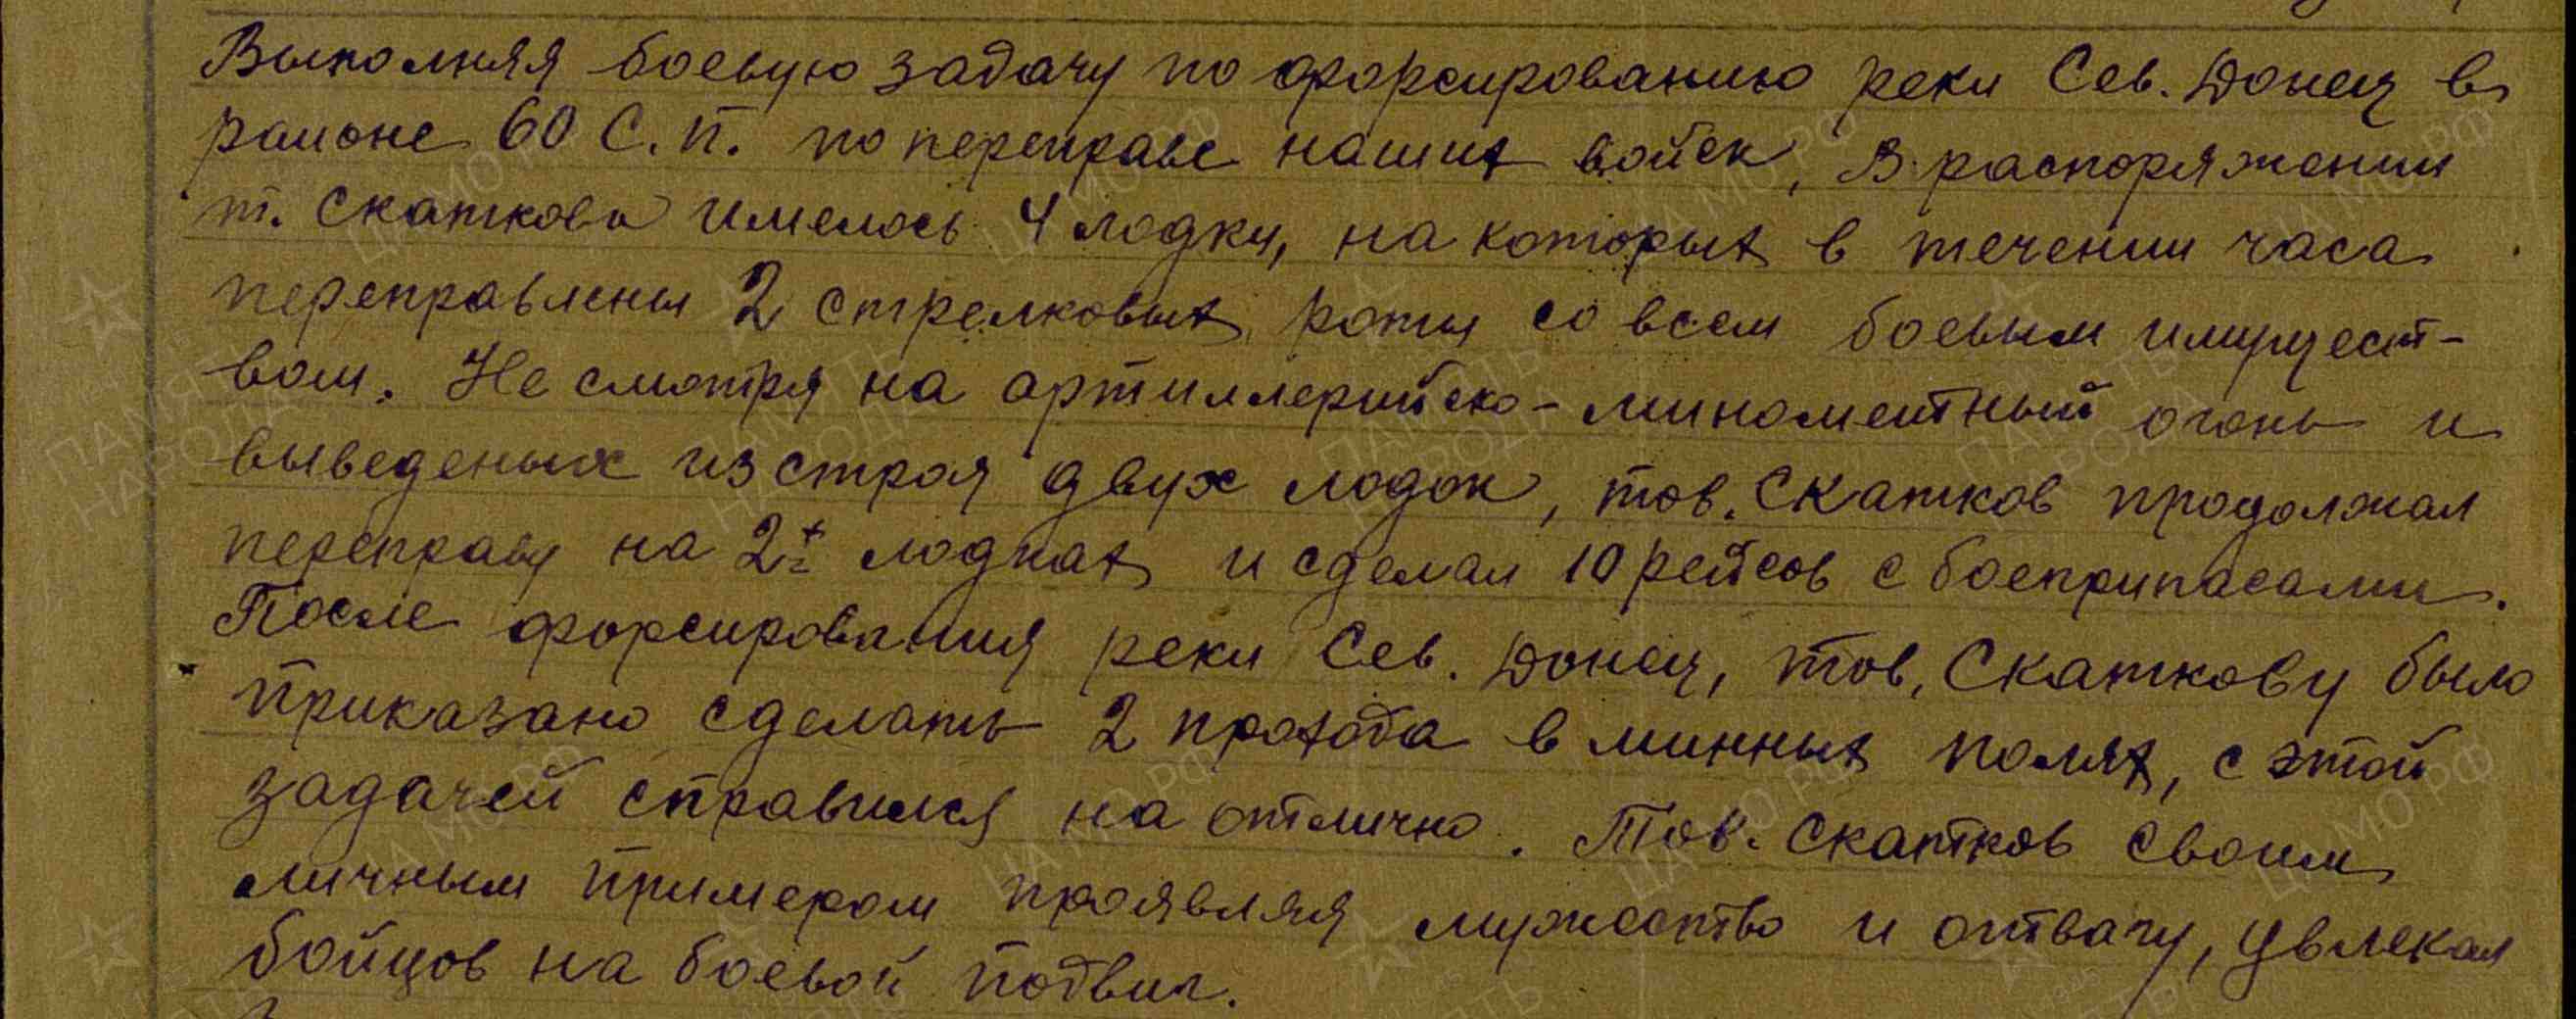 Выполняя боевую задачу по форсированию реки Сев. Донец в
районе 60 С.П. по переправе наших войск, В распоряжении
т. Скаткова имелось 4 лодки, на которых в течении часа
переправлены 2 стрелковых роты со всем боевым имущест-
вом. Не смотря на артиллерийско-миномётный огонь и
выведеных из строя двух лодок, тов. Скатков продолжал
переправу на 2х лодках и сделал 10 рейсов с боеприпасами.
После форсирования реки Сев. Донец, тов. Скаткову было
приказано сделать 2 прохода в минных полях, с этой
задачей справился на отлично. Тов. Скатков своим
личным примером проявляя мужество и отвагу, увлекал
бойцов на боевой подвиг.